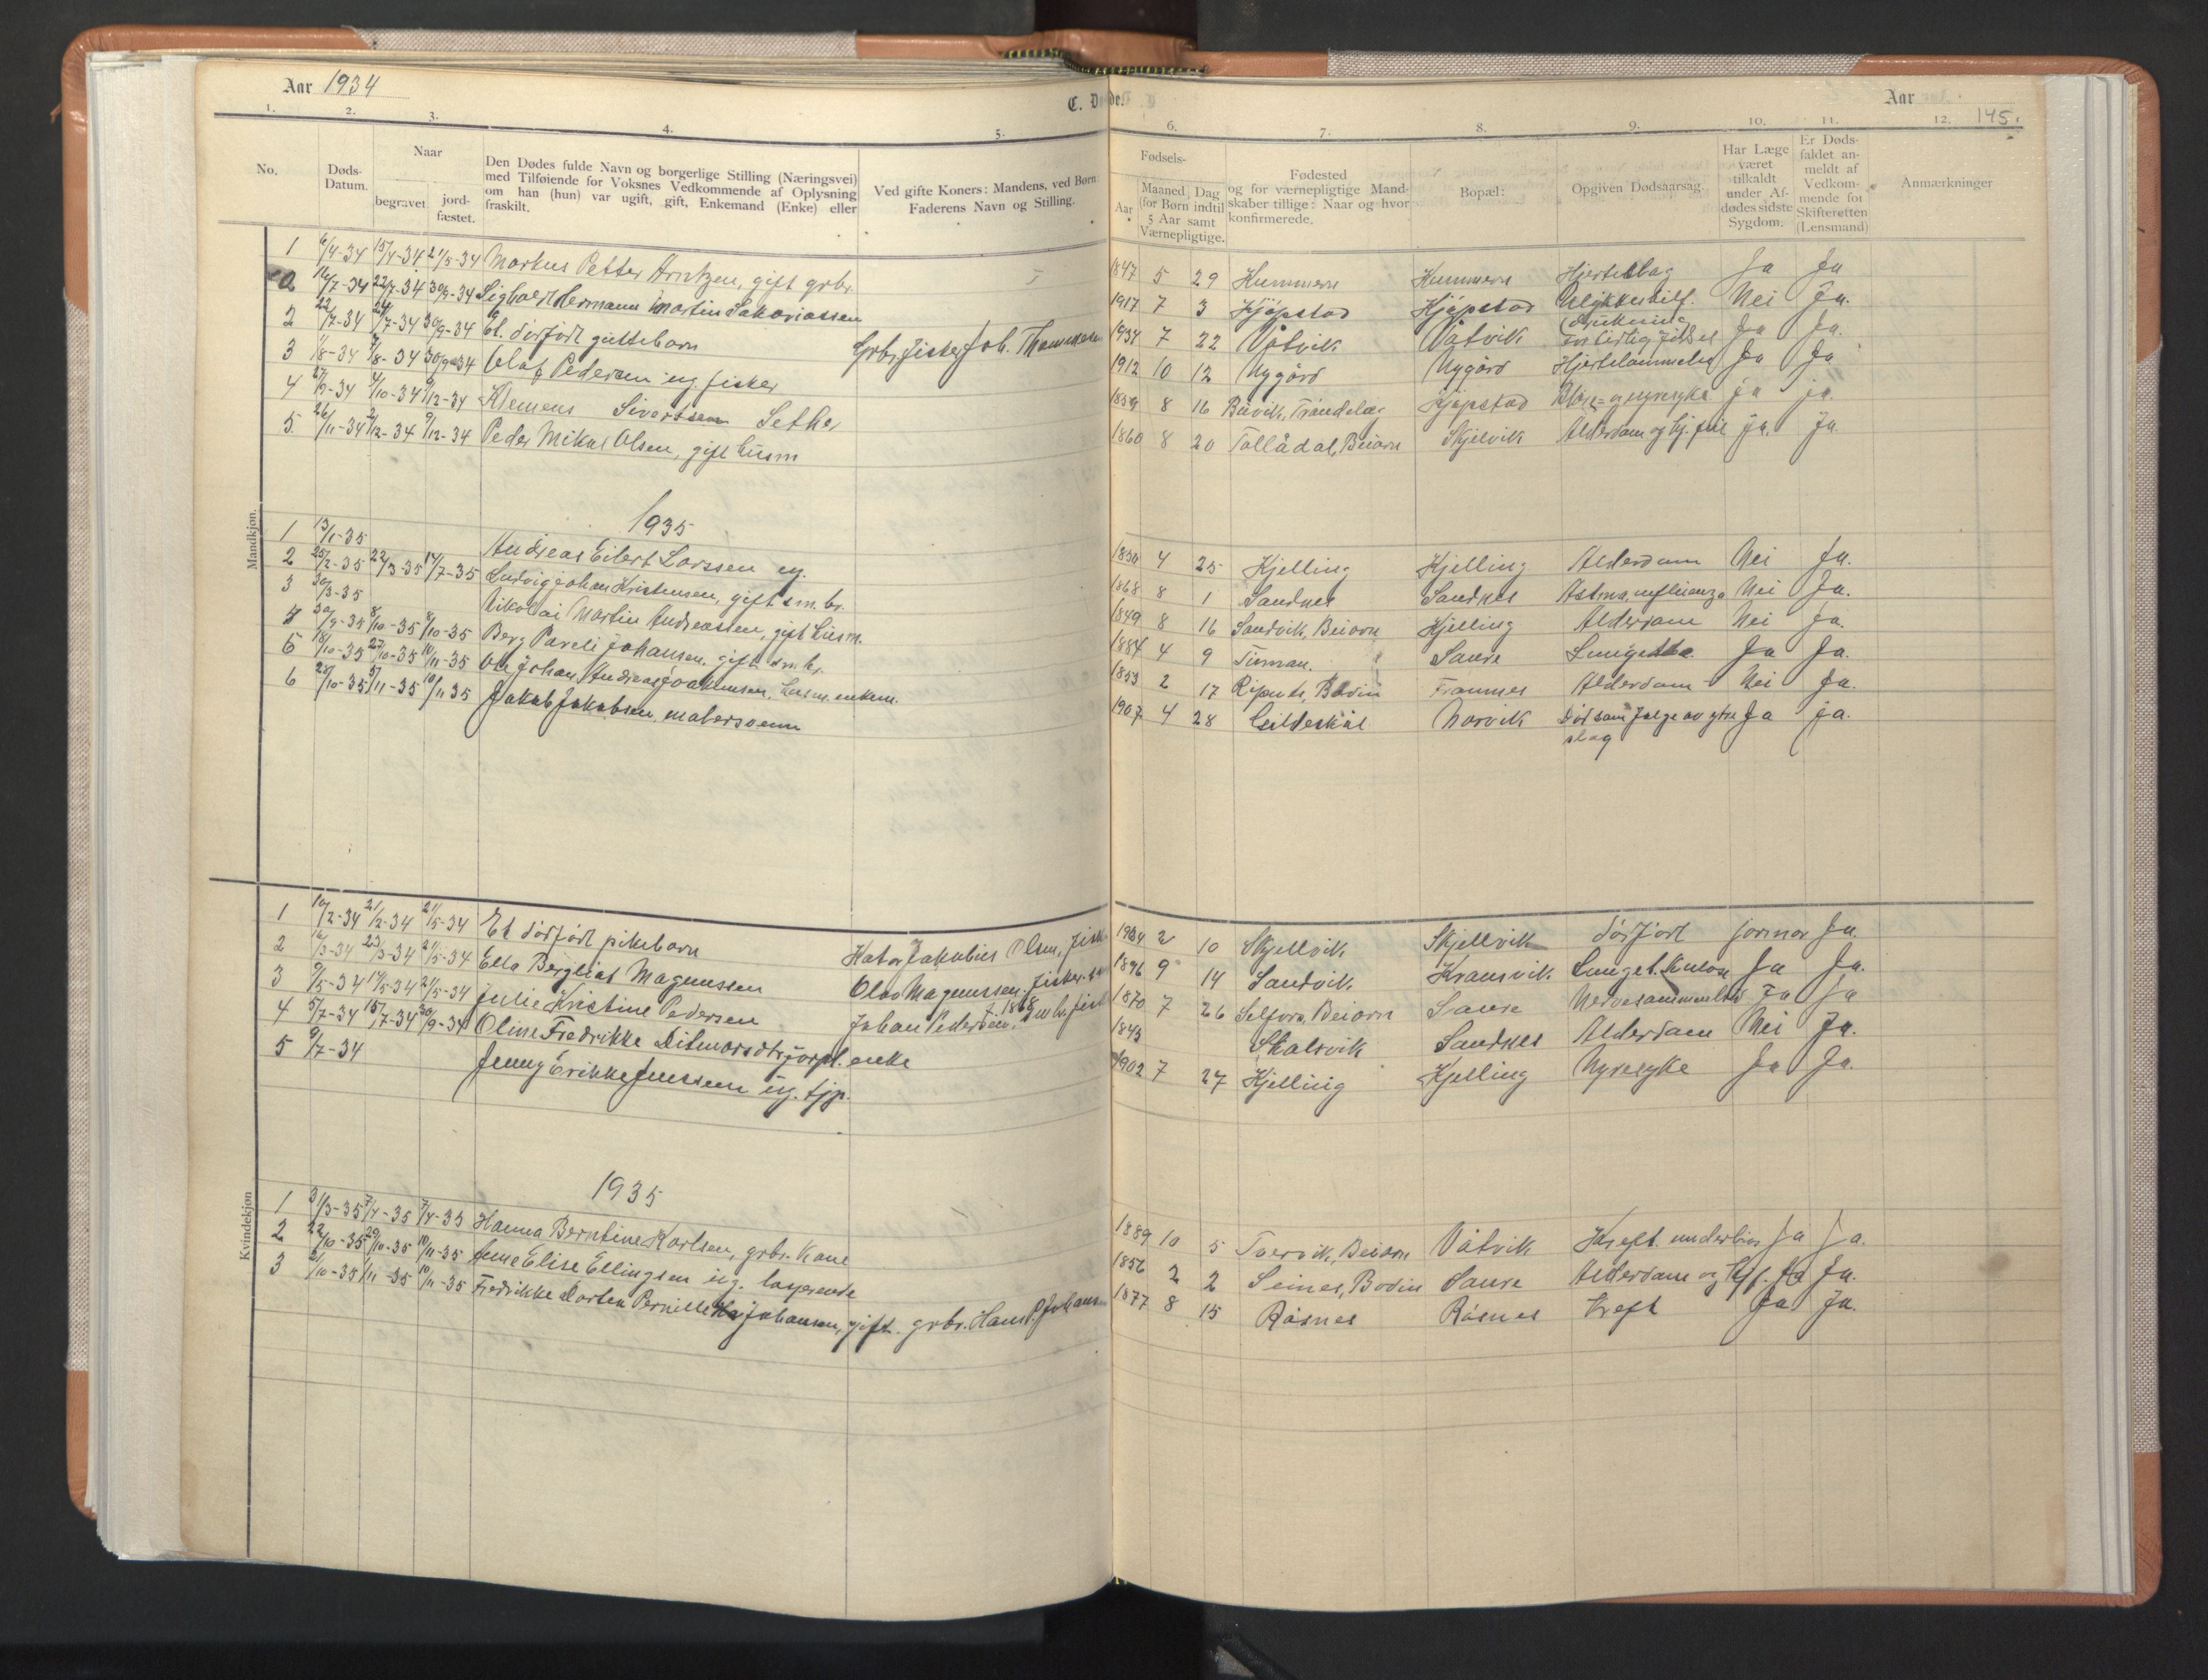 Aar 1934
C. Døde.
Aar
145.
1. 2. 3. 4. 5. 6. 7. 8. 9. 10. 11. 12.
No.
Døds-
Datum.
Naar
begravet.
jord-
fæstet.
Den Dødes fulde Navn og borgerlige Stilling (Næringsvei)
med Tilføiende for Voksnes Vedkommende af Oplysning
om han (hun) var ugift, gift, Enkemand (Enke) eller
fraskilt.
Ved gifte Koners: Mandens, ved Børn:
Faderens Navn og Stilling.
Fødsels-
Aar
Maaned Dag
(for Børn indtil
5 Aar samt
Værnepligtige.
Fødested
og for værnepligtige Mand-
skaber tillige: Naar og hvor
konfirmerede.
Bopæl:
Opgiven Dødsaarsag.
Har Læge
været
tilkaldt
under Af-
dødes sidste
Sygdom.
Er Døds-
faldet an-
meldt af
Vedkom-
mende for
Skifteretten
(Lensmand)
Anmærkninger
Mandkjøn.
1 6/4-34 15/4-34 21/5-34 Markus Petter Arntzen, gift grbr. 1847 5 29 Hummern Hummern Hjerteslag Ja Ja
16/7-34 22/7-34 30/9-34 Sigvart Hermann Martin Sakariassen 1917 7 3 Kjøpstad Kjøpstad Ulykkestilf. Nei Ja.
(drukning
2 22/7-34 24/7-34 30/9-34 Et dødfødt guttebarn Grbr. fisker Joh. Thommesen 1934 7 22 Våtvik Våtvik For tidlig fødsel Ja Ja.
3 1/8-34 7/8-34 30/9-34 Olaf Pedersen ug. fisker 1912 10 12 Nygård Nygård Hjertelammelse Ja Ja
4 27/9-34 4/10-34 9/12-34 Klemens Sivertsen Sether 1859 8 16 Trøndelag Kjøpstad Blære- og nyresyke Ja ja.
5. 26/11-34 2/12-34 9/12-34 Peder Mikal Olsen, gift husm 1860 8 20 Tollådal, Beiarn Skjelvik Alderdom og hj.feil Ja. Ja.
1935
1 13/1-35 Andreas Eilert Larssen ug. 1850 4 25 Kjelling Kjelling Alderdom Nei Ja.
2 25/2-35 22/3-35 14/7-35 Ludvig Johan Kristensen, gift sm.br. 1868 8 1 Sandnes Sandnes Astma, influenza Nei Ja.
3 30/3-35 Nikolai Martin Andreassen, gift husm. 1849 8 16 Sandvik, Beiarn Kjelling Alderdom Nei Ja.
4 30/9-35 8/10-35 8/10-35 Berg Pareli Johansen, gift sm.br. 1884 4 9 Tuman. Saure Ja Ja.
5 18/10-35 27/10-35 10/11-35 Ole Johan Andreas Joakimsen, husm. enkem. 1853 2 17 Ripnes, Bodin Framnes Alderdom Nei Ja.
6 28/10-35 5/11-35 10/11 35 Jakob Jakobsen, malersvenn 1907 4 28 Gildeskål Narvik Død som følge av ytre Ja ja.
slag
Kvindekjøn
1 10/2-34 21/2-34 21/5-34 Et dødfødt pikebarn Hator Jakobius Olsen, fisk 1934 2 10 Skjellvik Skjellvik dødfødt jormor Ja.
2 16/3-34 23/3-34 21/5-34 Ella Bergliot Magnussen Olav Magnussen, fisker. 1896 9 14 Sandvik Kransvik Lunget. Ja Ja.
3 9/5-34 17/5-34 21/5-34 Julie Kristine Pedersen Johan Pedersen, f. 1868 smbr. fisk 1870 7 26 Selfors, Beiarn Saure Nervesammenbr. Ja Ja
4 5/7-34 15/7-34 30/9-34 Oline Fredrikke Ditmarsdtr. forpl. enke 1843 Skalsvik Sandnes Alderdom Nei Ja.
5 9/7-34 Jenny Erikke Jenssen ug. tjp. 1902 7 27 Kjelling Kjelling Nyresyke Ja Ja.
1935
1 31/3-35 7/4-35 7/4-35 Hanna Berntine Karlsen, grbr. kone 1889 10 5 Tvervik, Beiarn Våtvik Kreft. underliv Ja Ja.
2 22/10-35 29/10-35 10/11-35 Anne Elise Ellingsen ug. losjerende 1856 2 2 Seines, Bodin Saure Alderdom og hjf. Ja Ja.
3 21/10-35 1/11-35 10/11-35 Fredrikke Dortea Pernille Johansen, gift. grbr. Hans P. Johansen 1877 8 15 Råsnes Råsnes kreft Ja Ja.